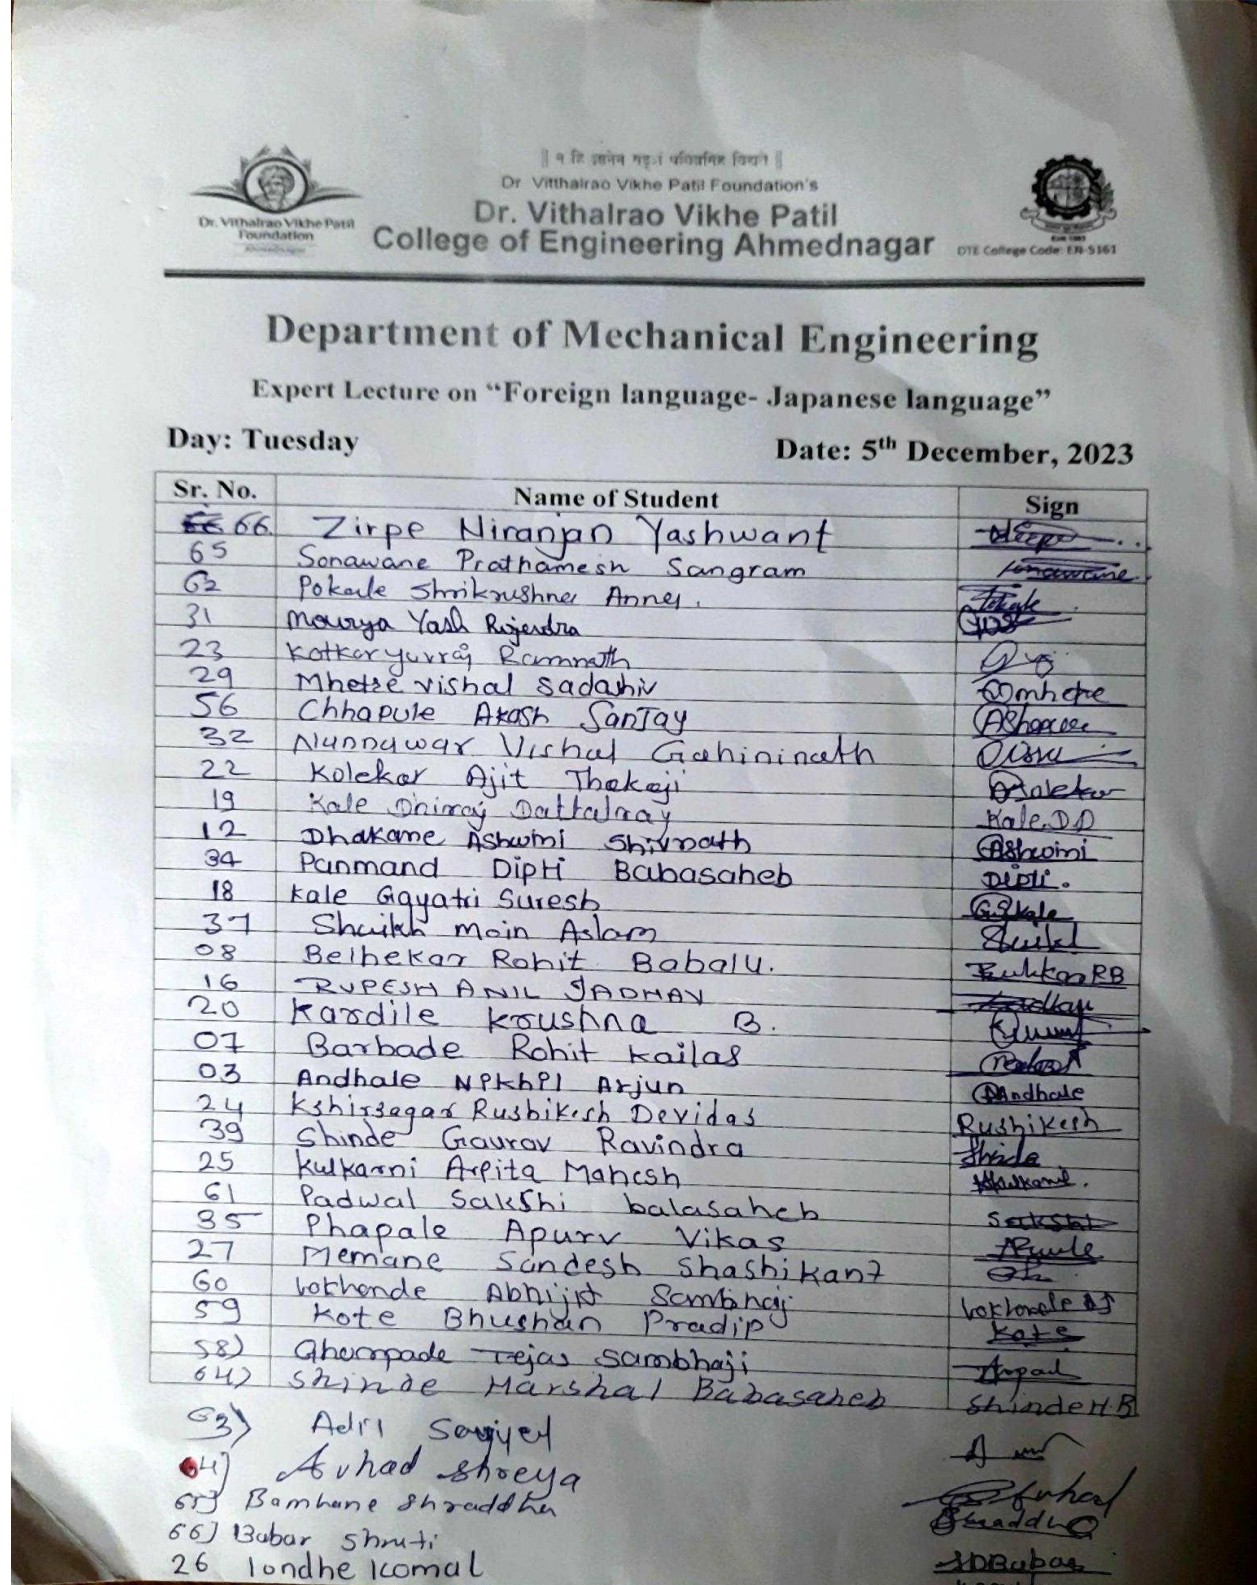 Dr Vitthalrao Vikhe Patil Foundation's
Dr. Vithalrao Vikhe Patil
College of Engineering Ahmednagar
Dr. Vithalrao Vikhe Patil
Foundation
DTE College Code: EN-5161
Department of Mechanical Engineering
Expert Lecture on “Foreign language- Japanese language”
Day: Tuesday Date: 5th December, 2023
Sr. No. Name of Student Sign
66 Zirpe Niranjan Yashwant
65 Sonawane Prathamesh Sangram
62 Pokale Shrikrushna Anna.
31 Mourya Yash Rajendra
23 Kotkar yuvraj Ramnath
29 Mhetre vishal sadashiv
56 Chhapule Akash Sanjay
32 Nunnawar Vishal Gahininath
22 Kolekar Ajit Thakaji
19 Kale Dhiraj Dattatray Kale.D.D
12 Dhakane Ashwini Shivnath Ashwini
34 Panmand Dipti Babasaheb Dipti.
18 Kale Gayatri Suresh
37 Shaikh Moin Aslam
08 Belhekar Rohit Babalu.
16 RUPESH ANIL JADHAV
20 Kardile Krushna B.
07 Barbade Rohit Kailas
03 Andhale Nikhil Arjun Andhale
24 Kshirsagar Rushikesh Devidas Rushikesh
39 Shinde Gaurav Ravindra Shinde
25 Kulkarni Arpita Mahesh
61 Padwal Sakshi balasaheb Sakshi
35 Phapale Apurv Vikas
27 Memane Sandesh Shashikant
60 Lokhande Abhijit Sambhaji
59 Kote Bhushan Pradip Kote
58) Ghorpade Tejas Sambhaji
64) Shinde Harshal Babasaheb Shinde H.B
63) Adil Sayyed
64) Avhad Shreya
65) Bamhane Shraddha Shraddha
66) Babar Shruti SDBabar
26 londhe Komal